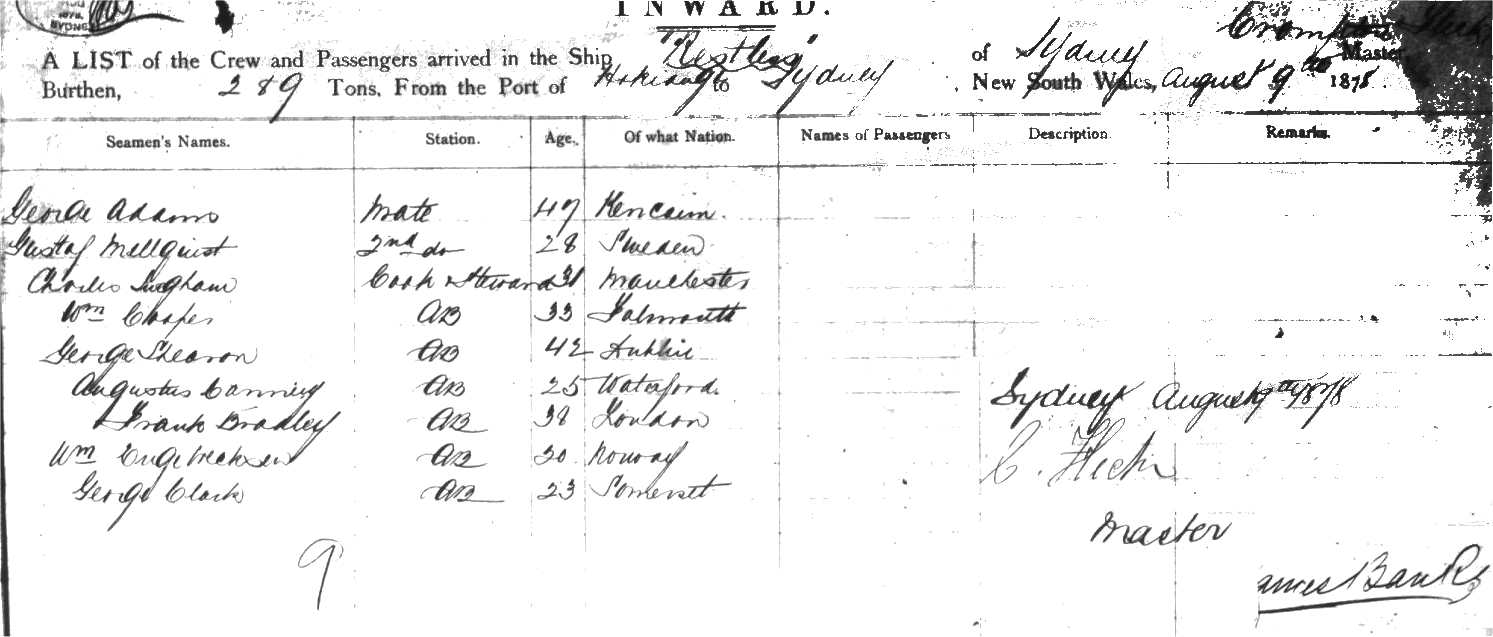 1878.
SYDNEY
INWARD.
A LIST of the Crew and Passengers arrived in the Ship "Restless" of Sydney Master
Burthen, 289 Tons, From the Port of Hokianga to Sydney New South Wales, August 9th 1878.
Seamen's Names. Station. Age. Of what Nation. Names of Passengers Description. Remarks.
George Adams Mate 47
Gustaf Mellquist 2nd do 28 Sweden
Charles Ingham Cook & Steward 31 Manchester
Wm Cooper AB 33 Falmouth
George Shearon AB 42 Dublin
Augustus Canning AB 25 Waterford.
Frank Bradley AB 38 London
Wm AB 30 Norway
George Clark AB 23 Somerset
Sydney August 9th 1878
C. Fleck
Master
9
ames Banks